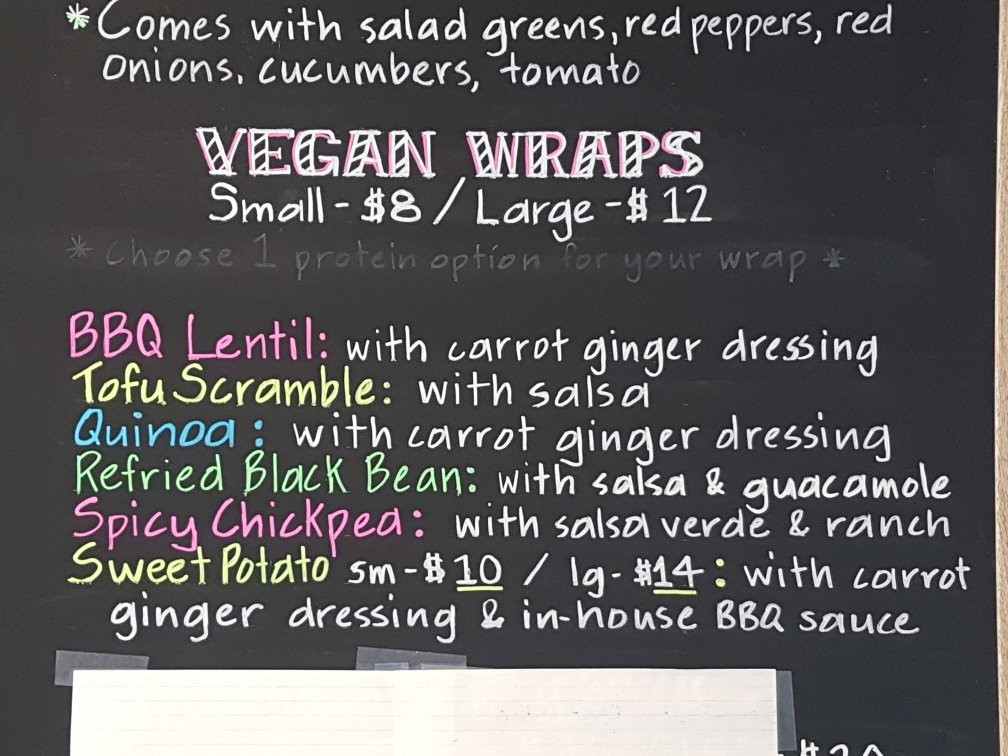 *Comes with salad greens, red peppers, red
onions, cucumbers, tomato
VEGAN WRAPS
Small - $8 / Large - $12
* Choose 1 protein option for your wrap *
BBQ Lentil: with carrot ginger dressing
Tofu Scramble: with salsa
Quinoa: with carrot ginger dressing
Refried Black Bean: with salsa & guacamole
Spicy Chickpea: with salsa verde & ranch
Sweet Potato sm - $10 / lg - $14: with carrot
ginger dressing & in-house BBQ sauce